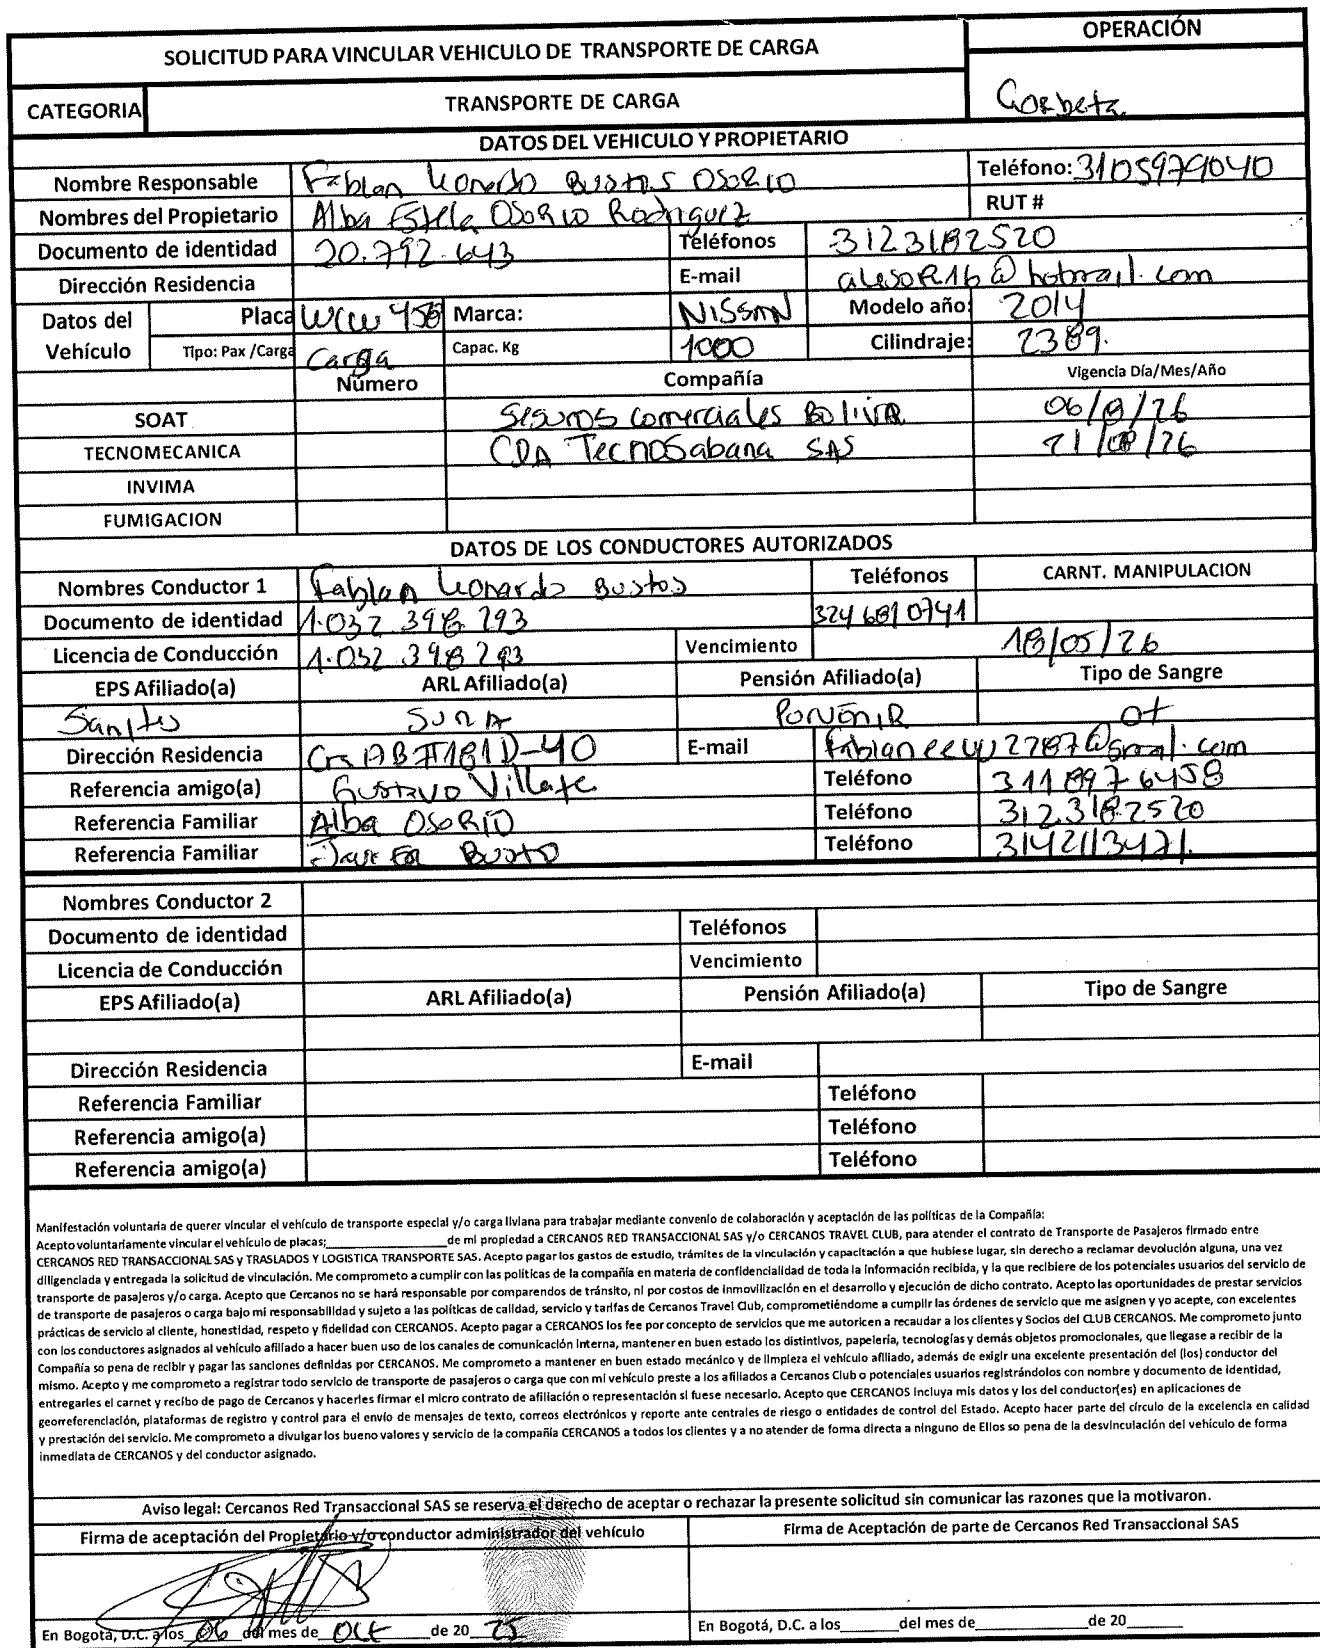 SOLICITUD PARA VINCULAR VEHICULO DE TRANSPORTE DE CARGA OPERACIÓN
CATEGORIA TRANSPORTE DE CARGA Corbeta
DATOS DEL VEHICULO Y PROPIETARIO
Nombre Responsable Fabian Leonardo Bustos OSORIO Teléfono: 3105979040
Nombres del Propietario Alba Estela OSORIO Rodriguez RUT #
Documento de identidad 20.792.643 Teléfonos 3123182520
Dirección Residencia E-mail alesoR16@hotmail.com
Datos del Vehículo Placa WCW 458 Marca: NISSAN Modelo año: 2014
Tipo: Pax /Carga Carga Capac. Kg 1000 Cilindraje: 2389.
Número Compañía Vigencia Día/Mes/Año
SOAT Seguros comerciales Bolivar 06/8/26
TECNOMECANICA CDA TecnoSabana SAS 21/08/26
INVIMA
FUMIGACION
DATOS DE LOS CONDUCTORES AUTORIZADOS
Nombres Conductor 1 Fabian Leonardo Bustos Teléfonos CARNT. MANIPULACION
Documento de identidad 1.032 398 293 324 6810741
Licencia de Conducción 1.032 398 293 Vencimiento 18/05/26
EPS Afiliado(a) ARL Afiliado(a) Pensión Afiliado(a) Tipo de Sangre
Sanitas SURA PORVENIR O+
Dirección Residencia Cra 7B #181D-40 E-mail
Referencia amigo(a) Gustavo Villate Teléfono 311 897 6458
Referencia Familiar Alba OSORIO Teléfono 3123182520
Referencia Familiar Javier Busto Teléfono 3142113471.
Nombres Conductor 2
Documento de identidad Teléfonos
Licencia de Conducción Vencimiento
EPS Afiliado(a) ARL Afiliado(a) Pensión Afiliado(a) Tipo de Sangre
Dirección Residencia E-mail
Referencia Familiar Teléfono
Referencia amigo(a) Teléfono
Referencia amigo(a) Teléfono
Manifestación voluntaria de querer vincular el vehículo de transporte especial y/o carga liviana para trabajar mediante convenio de colaboración y aceptación de las políticas de la Compañía:
Acepto voluntariamente vincular el vehículo de placas;____________________de mi propiedad a CERCANOS RED TRANSACCIONAL SAS y/o CERCANOS TRAVEL CLUB, para atender el contrato de Transporte de Pasajeros firmado entre
CERCANOS RED TRANSACCIONAL SAS y TRASLADOS Y LOGISTICA TRANSPORTE SAS. Acepto pagar los gastos de estudio, trámites de la vinculación y capacitación a que hubiese lugar, sin derecho a reclamar devolución alguna, una vez
diligenciada y entregada la solicitud de vinculación. Me comprometo a cumplir con las políticas de la compañía en materia de confidencialidad de toda la información recibida, y la que recibiere de los potenciales usuarios del servicio de
transporte de pasajeros y/o carga. Acepto que Cercanos no se hará responsable por comparendos de tránsito, ni por costos de inmovilización en el desarrollo y ejecución de dicho contrato. Acepto las oportunidades de prestar servicios
de transporte de pasajeros o carga bajo mi responsabilidad y sujeto a las políticas de calidad, servicio y tarifas de Cercanos Travel Club, comprometiéndome a cumplir las órdenes de servicio que me asignen y yo acepte, con excelentes
prácticas de servicio al cliente, honestidad, respeto y fidelidad con CERCANOS. Acepto pagar a CERCANOS los fee por concepto de servicios que me autoricen a recaudar a los clientes y Socios del CLUB CERCANOS. Me comprometo junto
con los conductores asignados al vehículo afiliado a hacer buen uso de los canales de comunicación interna, mantener en buen estado los distintivos, papelería, tecnologías y demás objetos promocionales, que llegase a recibir de la
Compañía so pena de recibir y pagar las sanciones definidas por CERCANOS. Me comprometo a mantener en buen estado mecánico y de limpieza el vehículo afiliado, además de exigir una excelente presentación del (los) conductor del
mismo. Acepto y me comprometo a registrar todo servicio de transporte de pasajeros o carga que con mi vehículo preste a los afiliados a Cercanos Club o potenciales usuarios registrándolos con nombre y documento de identidad,
entregarles el carnet y recibo de pago de Cercanos y hacerles firmar el micro contrato de afiliación o representación si fuese necesario. Acepto que CERCANOS incluya mis datos y los del conductor(es) en aplicaciones de
georreferenciación, plataformas de registro y control para el envío de mensajes de texto, correos electrónicos y reporte ante centrales de riesgo o entidades de control del Estado. Acepto hacer parte del círculo de la excelencia en calidad
y prestación del servicio. Me comprometo a divulgar los bueno valores y servicio de la compañía CERCANOS a todos los clientes y a no atender de forma directa a ninguno de Ellos so pena de la desvinculación del vehículo de forma
inmediata de CERCANOS y del conductor asignado.
Aviso legal: Cercanos Red Transaccional SAS se reserva el derecho de aceptar o rechazar la presente solicitud sin comunicar las razones que la motivaron.
Firma de aceptación del Propietario y/o conductor administrador del vehículo Firma de Aceptación de parte de Cercanos Red Transaccional SAS
En Bogotá, D.C. a los 06 del mes de Oct de 20 25 En Bogotá, D.C. a los______del mes de________________de 20____